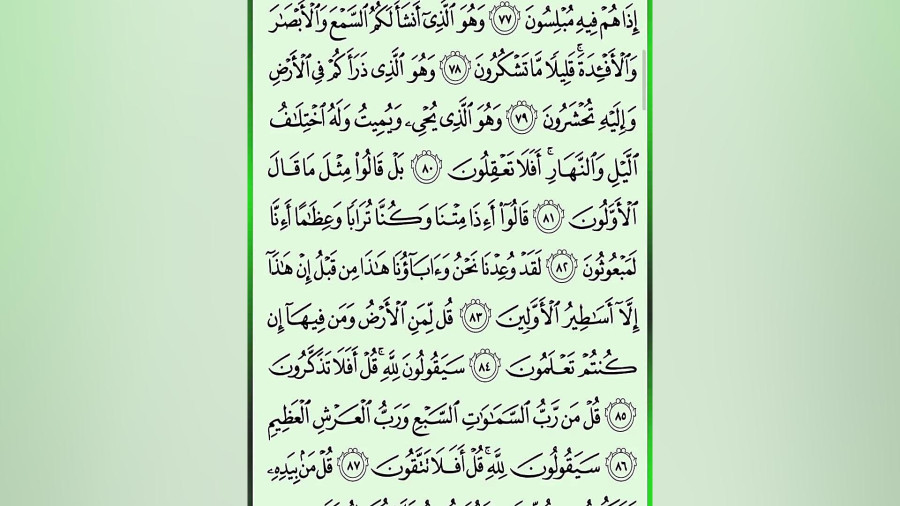 إِذَا هُمْ فِيهِ مُبْلِسُونَ ٧٧ وَهُوَ ٱلَّذِىٓ أَنشَأَ لَكُمُ ٱلسَّمْعَ وَٱلْأَبْصَـٰرَ
وَٱلْأَفْـِٔدَةَ ۚ قَلِيلًا مَّا تَشْكُرُونَ ٧٨ وَهُوَ ٱلَّذِى ذَرَأَكُمْ فِى ٱلْأَرْضِ
وَإِلَيْهِ تُحْشَرُونَ ٧٩ وَهُوَ ٱلَّذِى يُحْىِۦ وَيُمِيتُ وَلَهُ ٱخْتِلَـٰفُ
ٱلَّيْلِ وَٱلنَّهَارِ ۚ أَفَلَا تَعْقِلُونَ ٨٠ بَلْ قَالُوا۟ مِثْلَ مَا قَالَ
ٱلْأَوَّلُونَ ٨١ قَالُوٓا۟ أَءِذَا مِتْنَا وَكُنَّا تُرَابًا وَعِظَـٰمًا أَءِنَّا
لَمَبْعُوثُونَ ٨٢ لَقَدْ وُعِدْنَا نَحْنُ وَءَابَآؤُنَا هَـٰذَا مِن قَبْلُ إِنْ هَـٰذَآ
إِلَّآ أَسَـٰطِيرُ ٱلْأَوَّلِينَ ٨٣ قُل لِّمَنِ ٱلْأَرْضُ وَمَن فِيهَآ إِن
كُنتُمْ تَعْلَمُونَ ٨٤ سَيَقُولُونَ لِلَّهِ ۚ قُلْ أَفَلَا تَذَكَّرُونَ
٨٥ قُلْ مَن رَّبُّ ٱلسَّمَـٰوَٰتِ ٱلسَّبْعِ وَرَبُّ ٱلْعَرْشِ ٱلْعَظِيمِ
٨٦ سَيَقُولُونَ لِلَّهِ ۚ قُلْ أَفَلَا تَتَّقُونَ ٨٧ قُلْ مَنۢ بِيَدِهِۦ